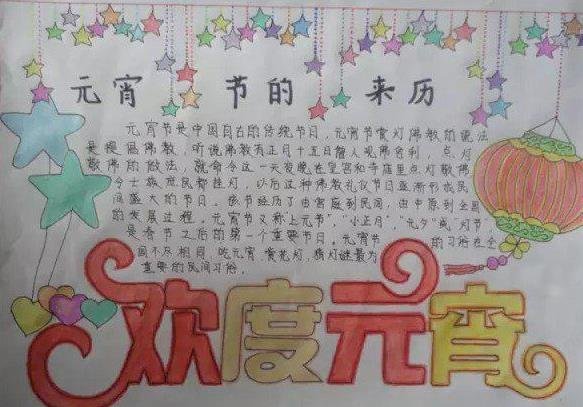 元宵节的来历
元宵节是中国自古的传统节日,元宵节赏灯佛教的说法
是提倡佛教,听说佛教有正月十五日僧人观佛舍利,点灯
敬佛的做法,就命令这一天夜晚在皇宫和寺庙里点灯敬佛
令士族庶民都挂灯,以后这种佛教礼仪节日逐渐形成民
间盛大的节日。该节经历了由宫庭到民间,由中原到全国
的发展过程。元宵节又称上元节","小正月","元夕"或"灯节",
是春节之后的第一个重要节日。元宵节的习俗在全
国不尽相同,吃元宵,赏花灯,猜灯谜最为
重要的民间习俗。
欢度元宵